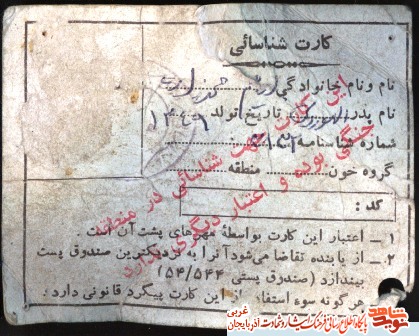 کارت شناسائی
نام و نام خانوادگی
نام پدر تاریخ تولد ۱۳۴۶
شماره شناسنامه
گروه خون منطقه
این کارت جهت شناسائی در منطقه
جنگی بوده و اعتبار دیگری ندارد
کد :
۱ـ اعتبار این کارت بواسطه مهرهای پشت آن است .
۲ـ از یابنده تقاضا میشود آنرا به نزدیکترین صندوق پست
بیندازد (صندوق پستی ۵۴/۵۴۴)
هرگونه سوء استفاده از این کارت پیگرد قانونی دارد .
نوید شاهد
پایگاه اطلاع رسانی فرهنگ ایثار و شهادت آذربایجان غربی